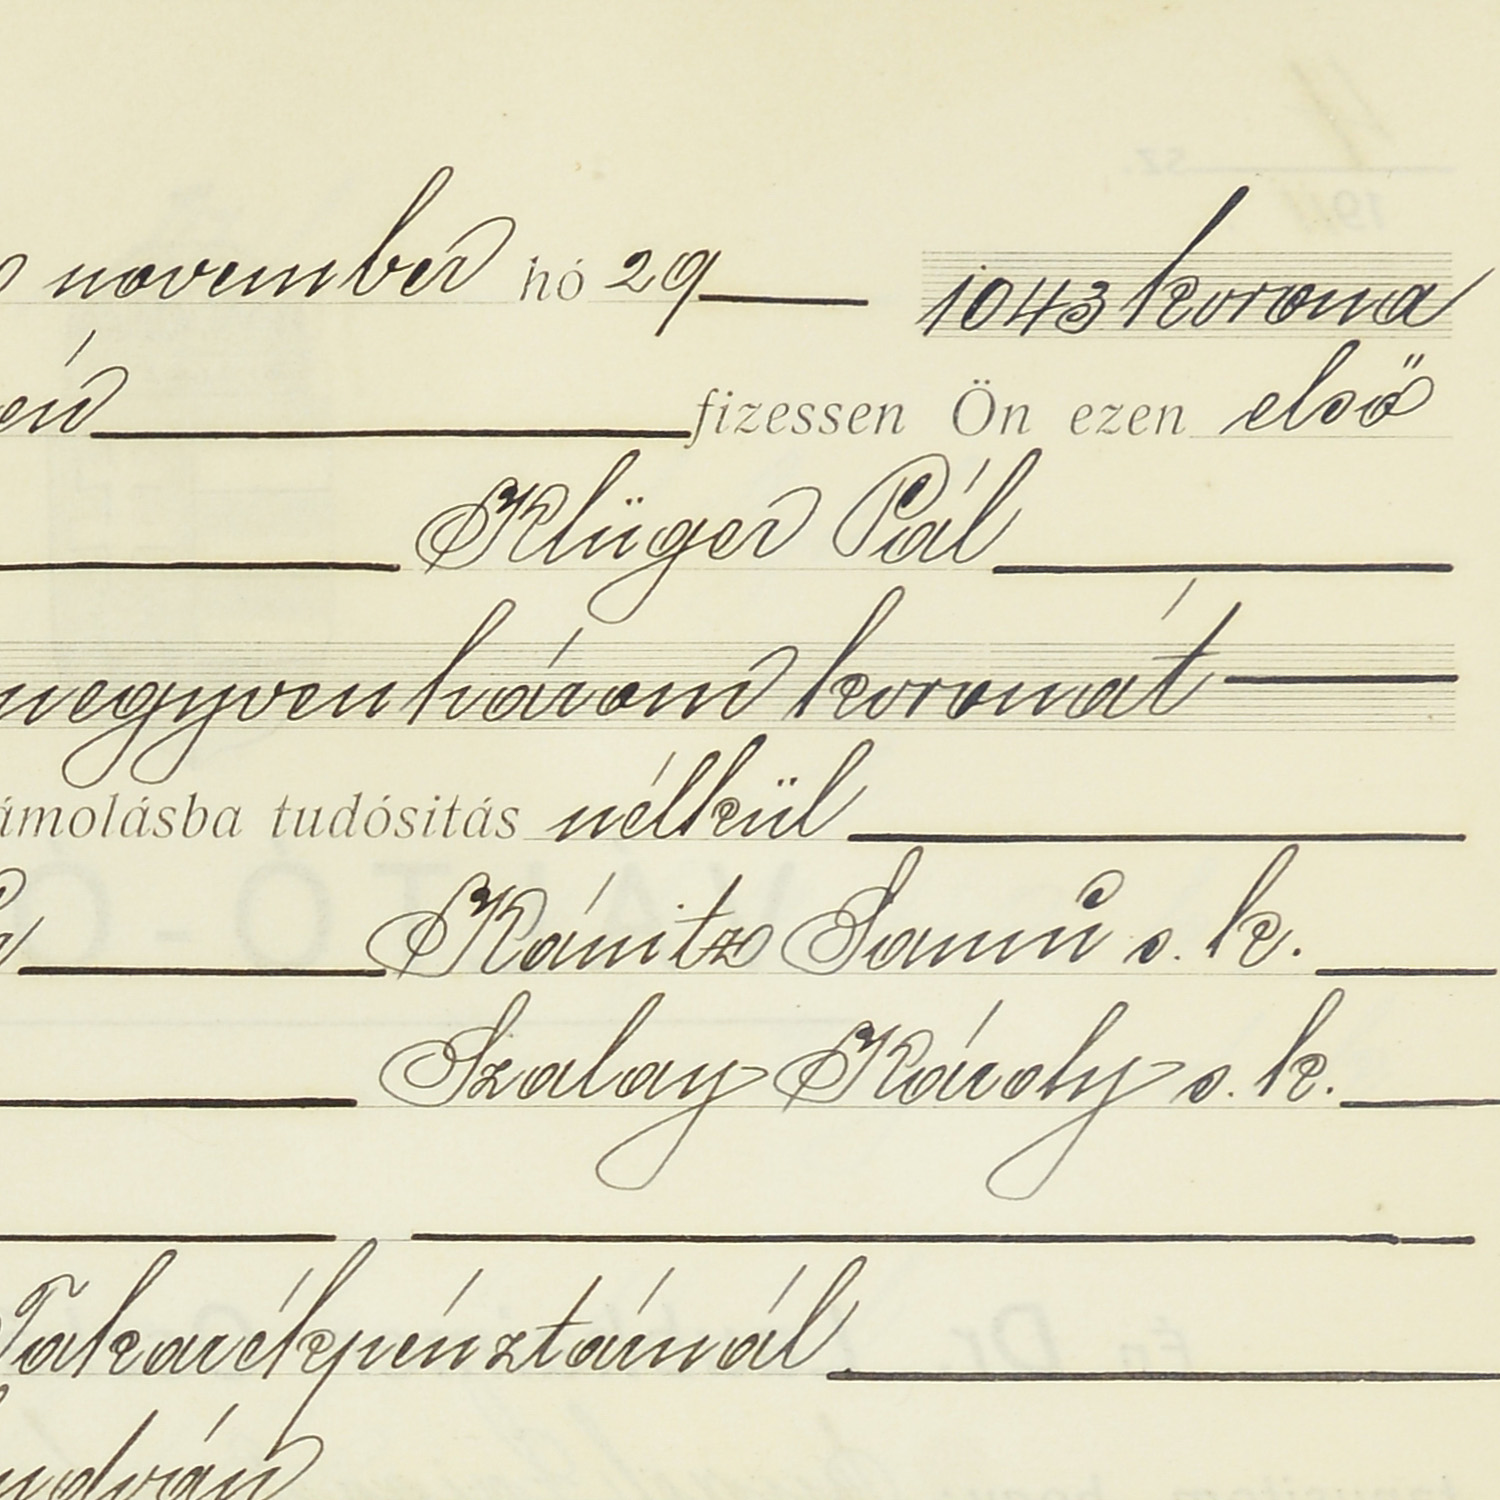 november hó 29 1043 korona
fizessen Ön ezen első
Klüger Pál
negyvenhárom koronát
ámolásba tudósitás nélkül
Kánitz Samu s. k.
Szalay Károly s. k.
Takarékpénztárnál.